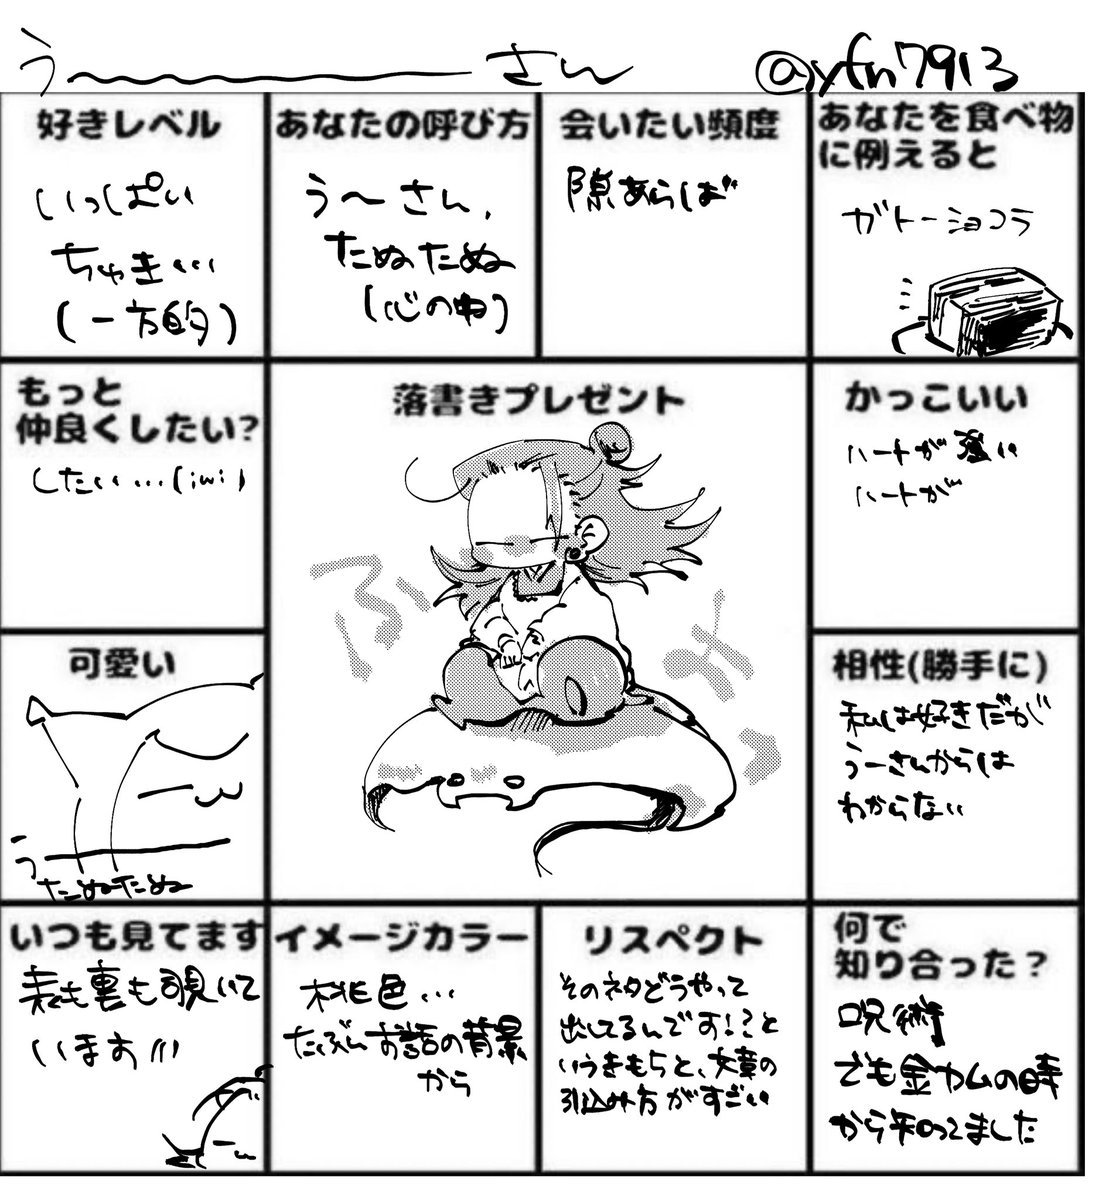 う〜〜〜〜〜さん @yfn7913
好きレベル
いっぱい
ちゅき…
(一方的)
あなたの呼び方
う〜さん、
たぬたぬ
(心の中)
会いたい頻度
隙あらば
あなたを食べ物
に例えると
ガトーショコラ
もっと
仲良くしたい?
したい…(;w;)
落書きプレゼント
ふ
よ
かっこいい
ハートが強い
ハートが
可愛い
う
たぬたぬ
相性(勝手に)
私は好きだが
うーさんからは
わからない
いつも見てます
表も裏も覗いて
います
イメージカラー
桃色…
たぶんお話の背景
から
リスペクト
そのネタどうやって
出してるんです!?と
いうきもちと、文章の
引込み方がすごい
何で
知り合った?
呪術
でも金カムの時
から知ってました